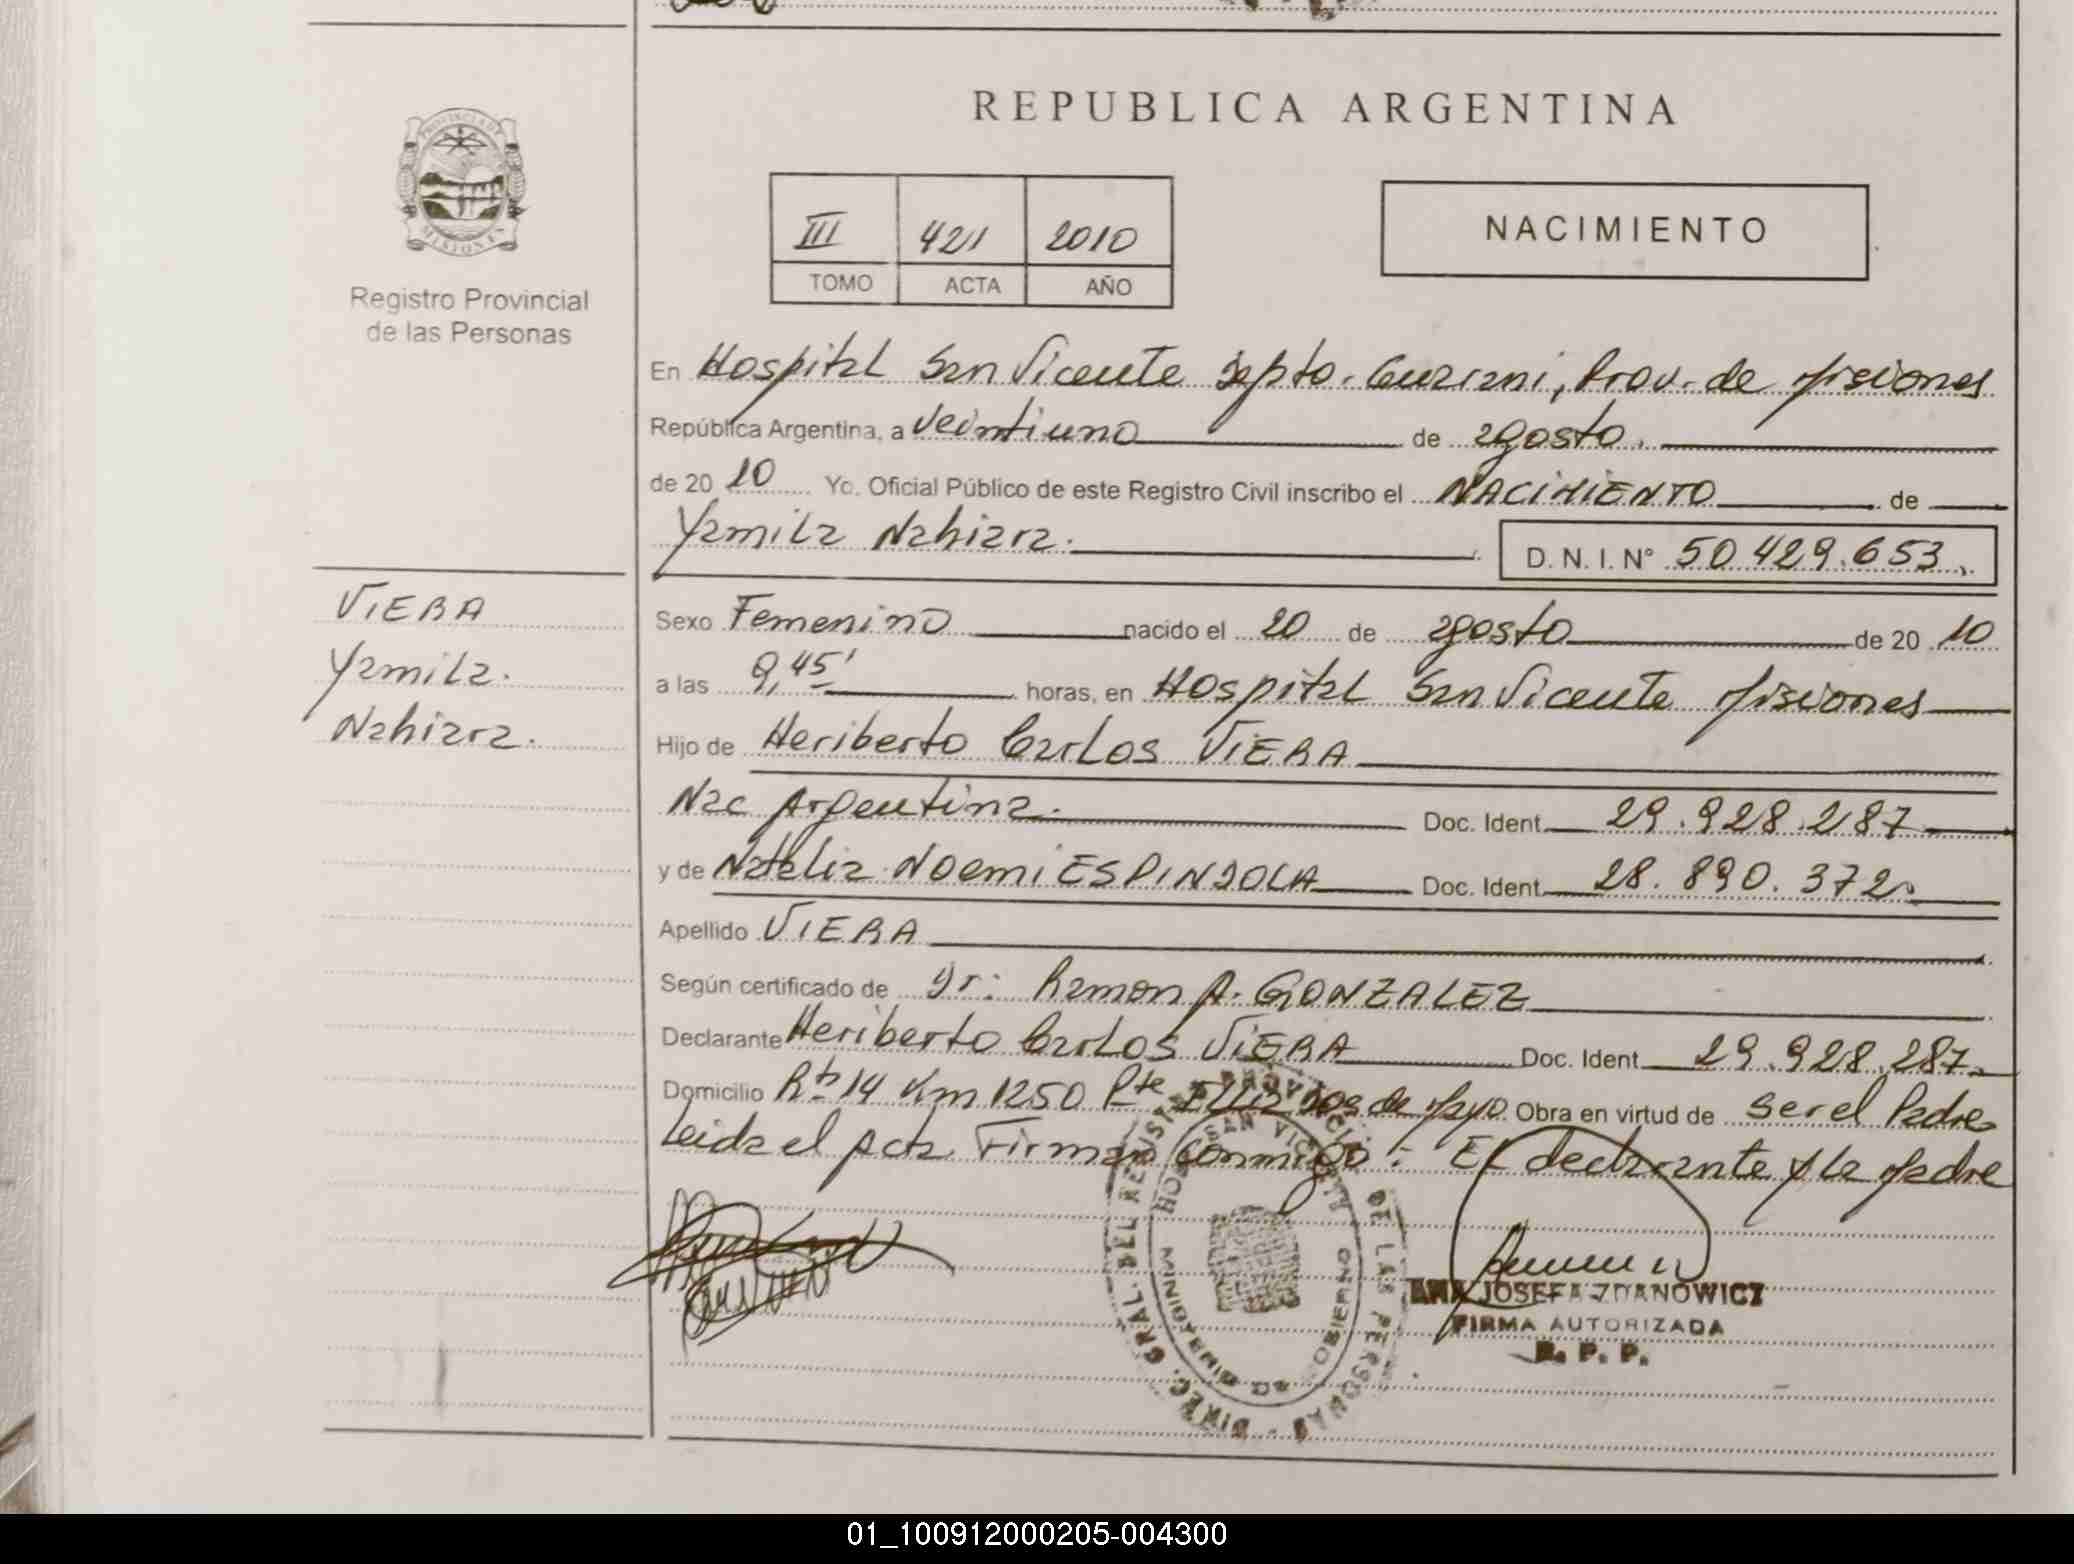 PROVINCIA DE
MISIONES
Registro Provincial
de las Personas
VIERA
Yamila.
Nahiara.
REPUBLICA ARGENTINA
III 421 2010
TOMO ACTA AÑO
NACIMIENTO
En Hospital San Vicente Depto. Guarani, Prov. de Misiones
República Argentina, a Veintiuno de agosto.
de 20 10 Yo, Oficial Público de este Registro Civil inscribo el NACIMIENTO de
Yamila Nahiara.
D. N. I. N° 50.429.653.
Sexo Femenino nacido el 20 de agosto de 20 10
a las 9,45' horas, en Hospital San Vicente Misiones
Hijo de Heriberto Carlos VIERA
Nac Argentina. Doc. Ident. 29.928.287
y de Natalia Noemi ESPINDOLA Doc. Ident. 28.890.372
Apellido VIERA
Según certificado de Dr: Ramon A. GONZALEZ
Declarante Heriberto Carlos VIERA Doc. Ident. 29.928.287
Domicilio Rta 14 Km 1250 Pte Dos de Mayo. Obra en virtud de ser el Padre
Leida el Acta Firman Conmigo: El declarante y la Madre
DIREC. GRAL. DEL REGISTRO PROVINCIAL DE LAS PERSONAS
HOSP. SAN VICENTE
MINISTERIO DE GOBIERNO
ANA JOSEFA ZDANOWICZ
FIRMA AUTORIZADA
R. P. P.
01_100912000205-004300